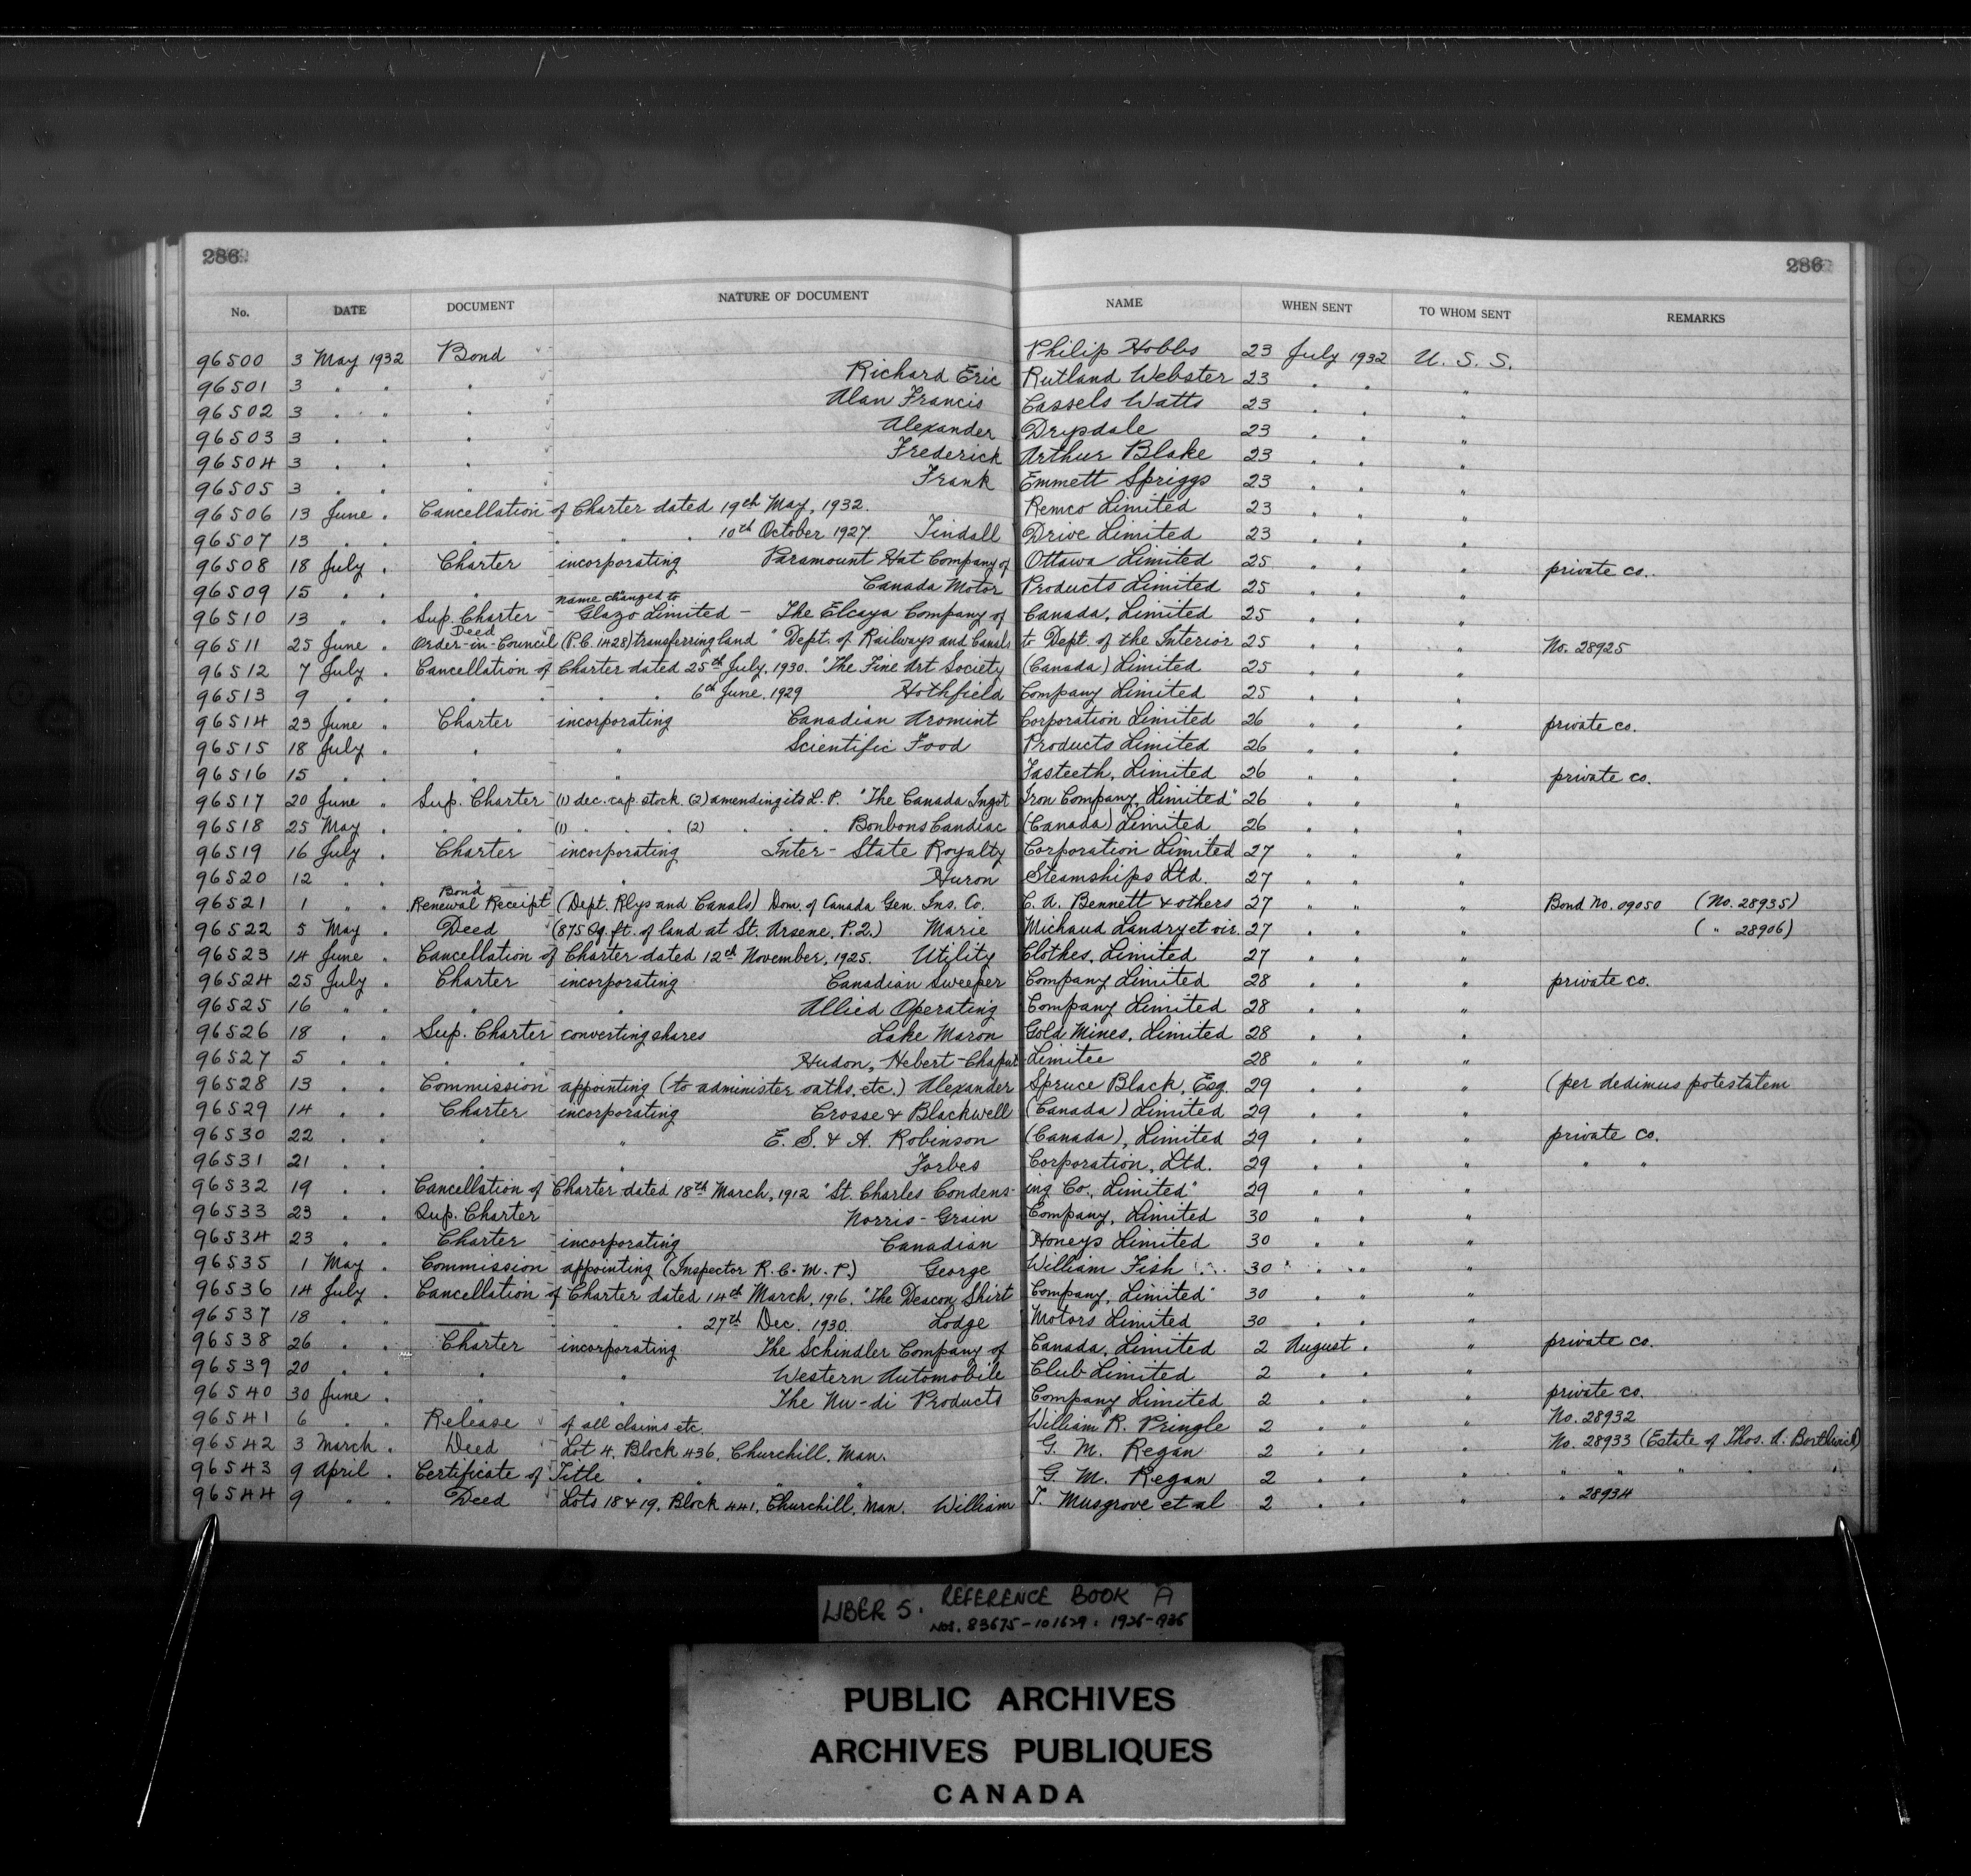 286 286
No. DATE DOCUMENT NATURE OF DOCUMENT NAME WHEN SENT TO WHOM SENT REMARKS
96500 3 May 1932 Bond Philip Hobbs 23 July 1932 U. S. S.
96501 3 " " " Richard Eric Rutland Webster 23 " " "
96502 3 " " " Alan Francis Cassels Watts 23 " " "
96503 3 " " " Alexander Drysdale 23 " " "
96504 3 " " " Frederick Arthur Blake 23 " " "
96505 3 " " " Frank Emmett Spriggs 23 " " "
96506 13 June " Cancellation of Charter dated 19th May, 1932. Remco Limited 23 " " "
96507 13 " " " " " " 10th October 1927. Tindall Drive Limited 23 " " "
96508 18 July " Charter incorporating Paramount Hat Company of Ottawa Limited 25 " " " private co.
96509 15 " " " Canada Motor Products Limited 25 " " "
96510 13 " " Sup. Charter name changed to Glazo Limited - The Elcaya Company of Canada, Limited 25 " " "
96511 25 June " Deed Order-in-Council (P.C. 1428) transferring land " Dept. of Railways and Canals to Dept. of the Interior 25 " " " No. 28925
96512 7 July " Cancellation of Charter dated 25th July, 1930. "The Fine Art Society (Canada) Limited 25 " " "
96513 9 " " " " " " 6th June, 1929 Hothfield Company Limited 25 " " "
96514 23 June " Charter incorporating Canadian Aromint Corporation Limited 26 " " " private co.
96515 18 July " " " Scientific Food Products Limited 26 " " "
96516 15 " " " " Fasteeth, Limited 26 " " " private co.
96517 20 June " Sup. Charter (1) dec. cap. stock (2) amending its L. P. "The Canada Ingot Iron Company, Limited" 26 " " "
96518 25 May " " " (1) " " " (2) " " " Bonbons Candiac (Canada) Limited 26 " " "
96519 16 July " Charter incorporating Inter-State Royalty Corporation Limited 27 " " "
96520 12 " " " " Huron Steamships Ltd. 27 " " "
96521 1 " " Bond Renewal Receipt (Dept. Rlys and Canals) Dom. of Canada Gen. Ins. Co. C. A. Bennett & others 27 " " " Bond No. 09050 (No. 28935)
96522 5 May " Deed (875 Sq. ft. of land at St. Arsene, P.Q.) Marie Michaud Landry et vir. 27 " " " ( " 28906)
96523 14 June " Cancellation of Charter dated 12th November, 1925. Utility Clothes, Limited 27 " " "
96524 25 July " Charter incorporating Canadian Sweeper Company Limited 28 " " " private co.
96525 16 " " " " Allied Operating Company Limited 28 " " "
96526 18 " " Sup. Charter converting shares Lake Maron Gold Mines, Limited 28 " " "
96527 5 " " " " Hudon, Hebert-Chaput Limitee 28 " " "
96528 13 " " Commission appointing (to administer oaths, etc.) Alexander Spruce Black, Esq. 29 " " " (per dedimus potestatem
96529 14 " " Charter incorporating Crosse & Blackwell (Canada) Limited 29 " " "
96530 22 " " " " E. S. & A. Robinson (Canada), Limited 29 " " " private co.
96531 21 " " " " Forbes Corporation, Ltd. 29 " " " " "
96532 19 " " Cancellation of Charter dated 18th March, 1912 "St. Charles Condens- ing Co., Limited" 29 " " "
96533 23 " " Sup. Charter Norris-Grain Company, Limited 30 " " "
96534 23 " " Charter incorporating Canadian Honeys Limited 30 " " "
96535 1 May " Commission appointing (Inspector R. C. M. P.) George William Fish 30 " " "
96536 14 July " Cancellation of Charter dated 14th March, 1916. "The Deacon Shirt Company, Limited" 30 " " "
96537 18 " " " " 27th Dec. 1930. Lodge Motors Limited 30 " " "
96538 26 " " Charter incorporating The Schindler Company of Canada, Limited 2 August " " private co.
96539 20 " " " " Western Automobile Club Limited 2 " " "
96540 30 June " " The Nu-di Products Company Limited 2 " " " private co.
96541 6 " " Release of all claims etc. William R. Pringle 2 " " " No. 28932
96542 3 March " Deed Lot 4, Block 436, Churchill, Man. G. M. Regan 2 " " " No. 28933 (Estate of Thos. A. Borthwick)
96543 9 April " Certificate of Title " " " " G. M. Regan 2 " " " " " " " "
96544 9 " " Deed Lots 18 & 19, Block 441, Churchill, Man. William T. Musgrove et al 2 " " " " 28934
LIBER 5. REFERENCE BOOK A
NOS. 83675-101629 : 1926-1936
PUBLIC ARCHIVES
ARCHIVES PUBLIQUES
CANADA